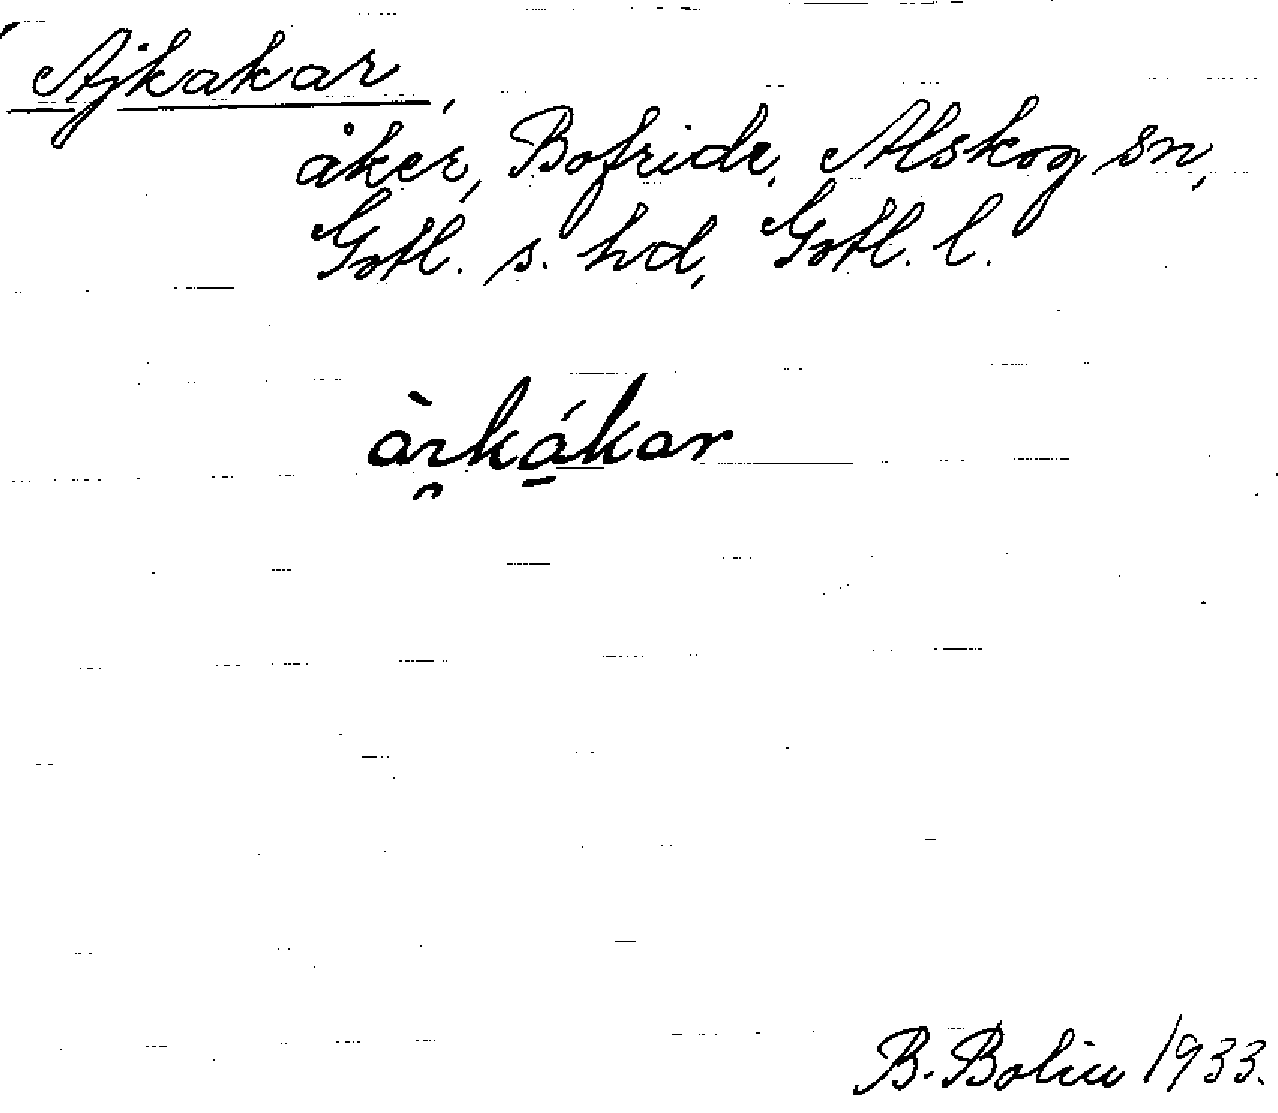 Ajkakar,
åker, Bofride, Alskog sn,
Gotl. s. hd, Gotl. l.
àɪ̯ká̱kar
B. Bolin 1933.